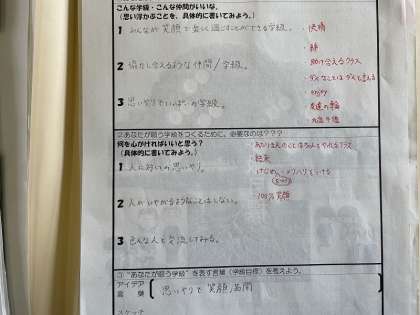 こんな学級・こんな仲間がいいな。
(思い浮かぶことを、具体的に書いてみよう。)
1 みんなが笑顔で楽しく過ごすことができる学級。
快晴
絆
2 協力し合えるような仲間/学級。
助け合えるクラス
ダイなしことはダイと言える
enjoy
3 思いやりでいっぱいの学級。
友達の輪
②あなたが願う学級をつくるために、必要なのは???
何を心がければいいと思う?
(具体的に書いてみよう。)
1 人に対しての思いやり。
結束
けじめ、メリハリをつける
2 人がいやがるようなことはしない。
100%笑顔
3 色んな人と交流してみる。
③“あなたが願う学級”を表す言葉(学級目標)を考えよう。
アイデア
言葉
思いやりで笑顔満開
スケッチ